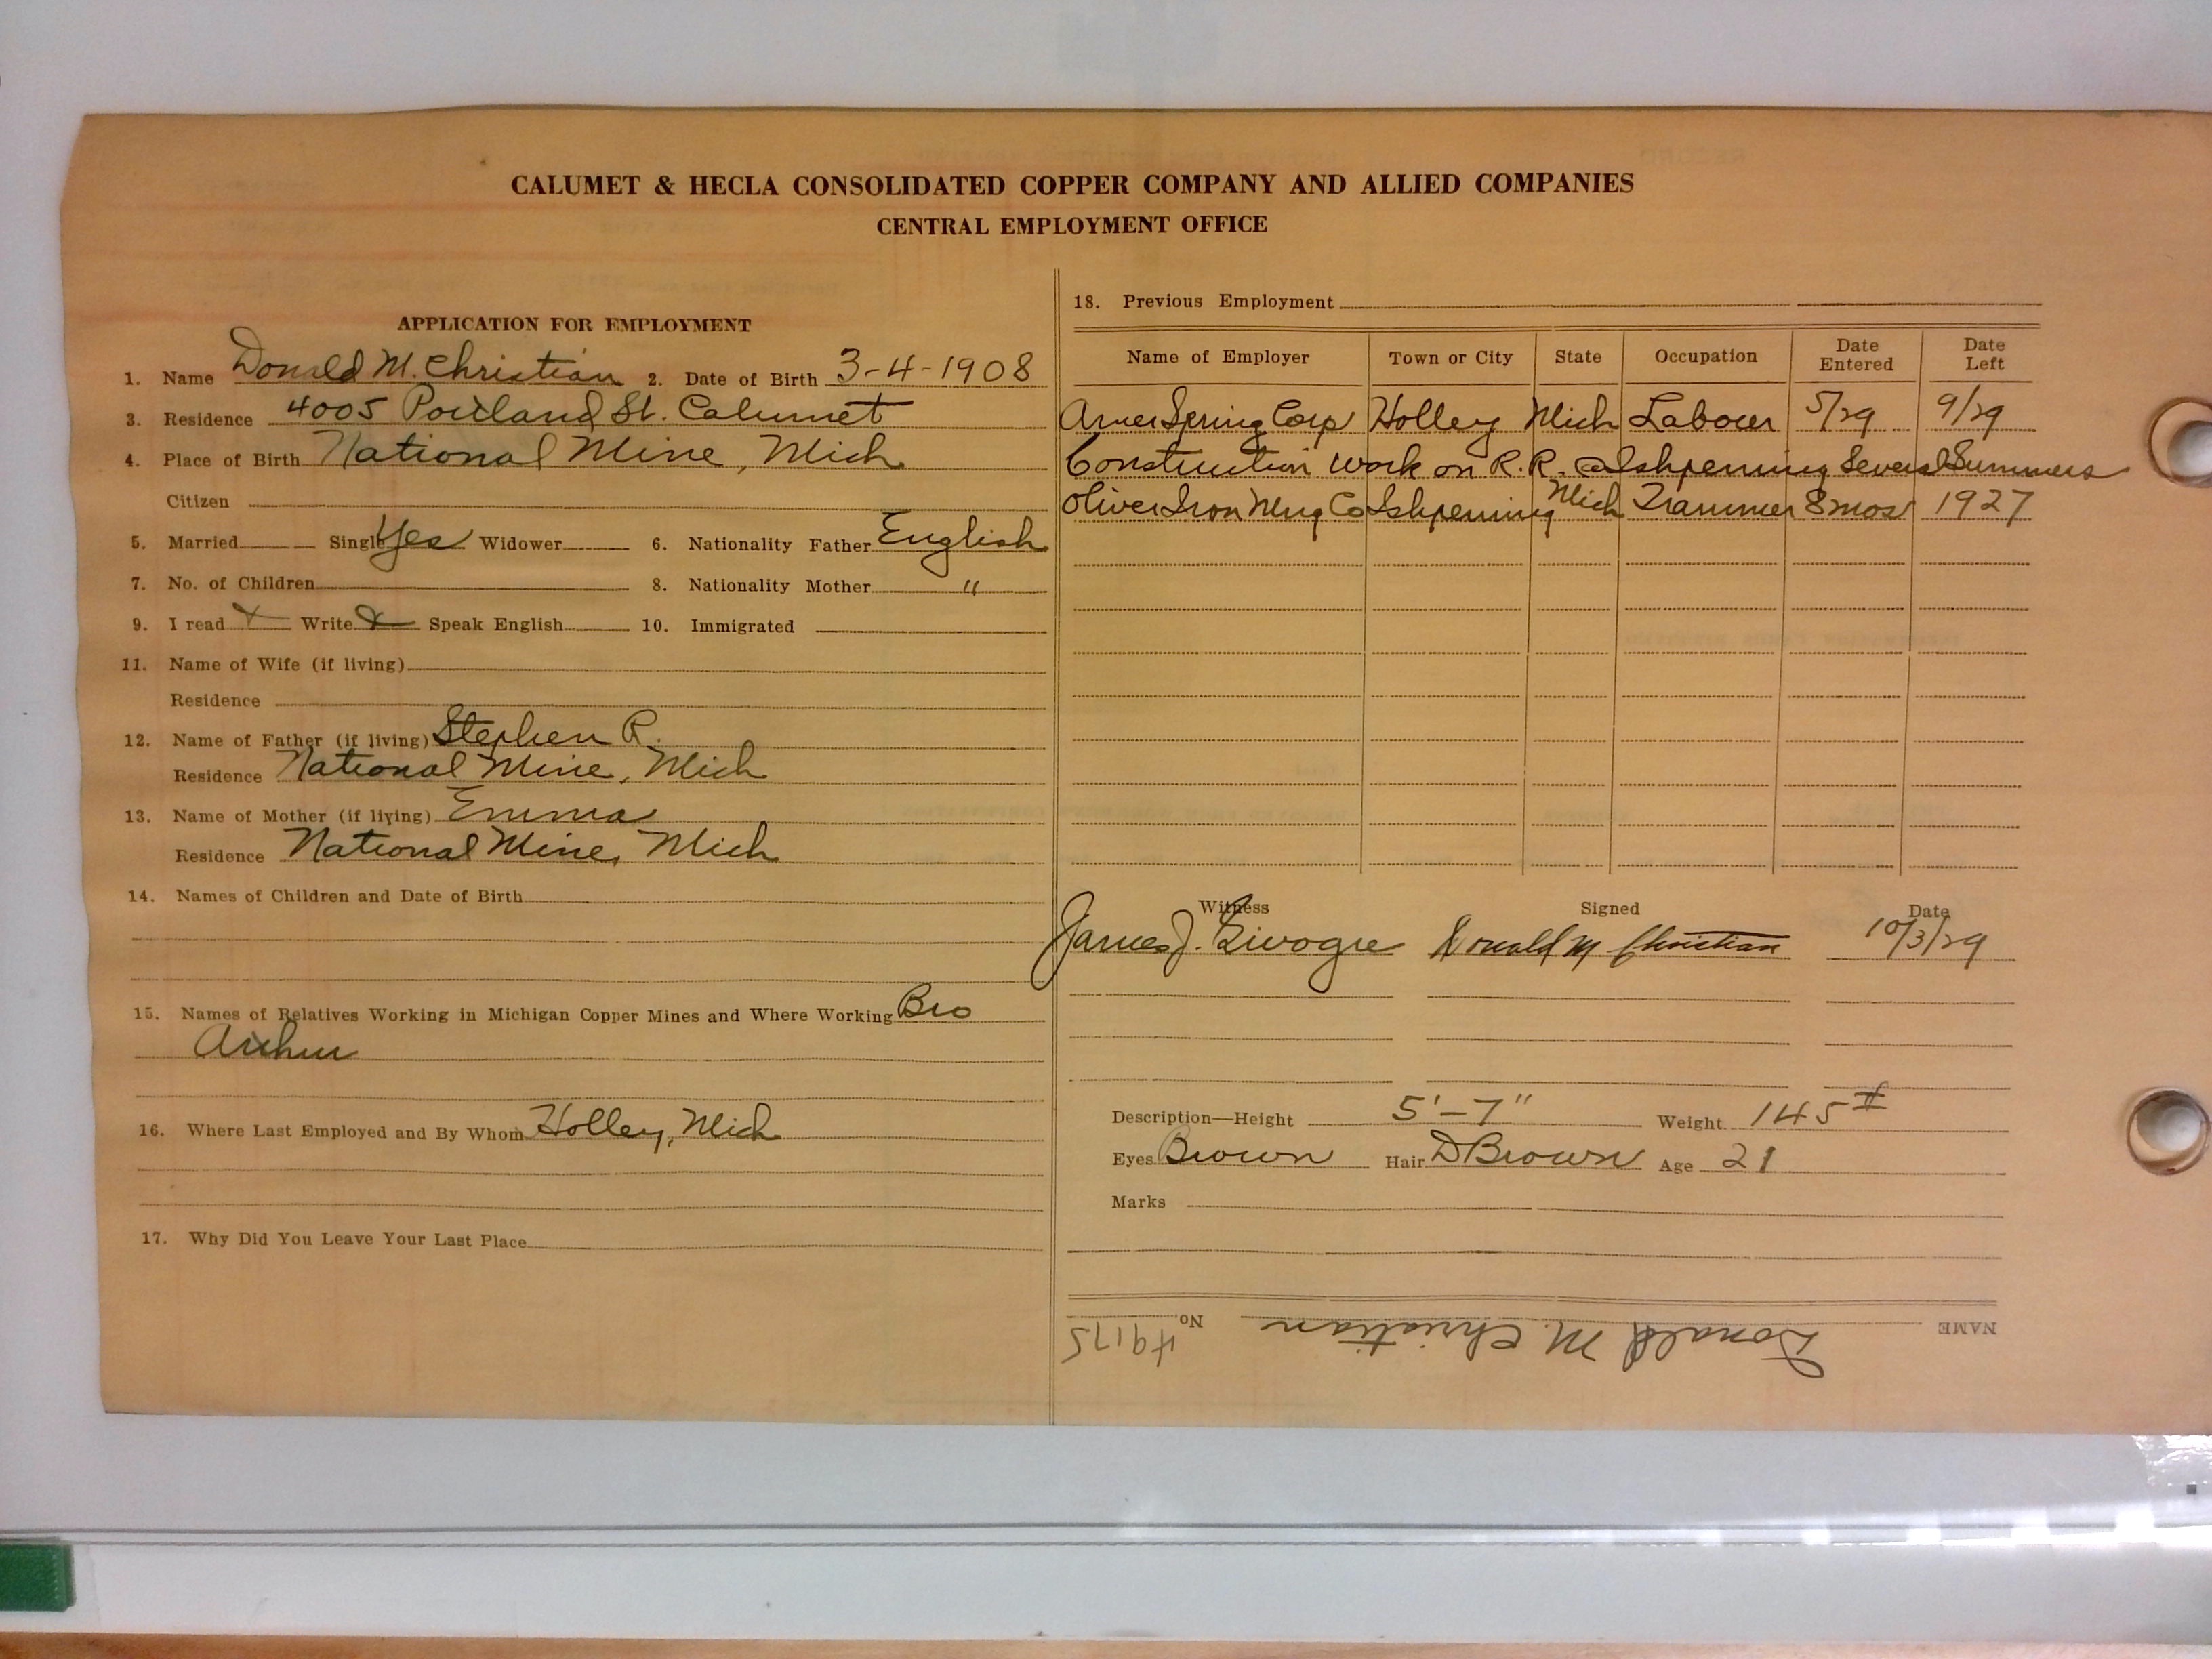 CALUMET & HECLA CONSOLIDATED COPPER COMPANY AND ALLIED COMPANIES
CENTRAL EMPLOYMENT OFFICE
APPLICATION FOR EMPLOYMENT
1. Name Donald M. Christian 2. Date of Birth 3-4-1908
3. Residence 4005 Portland St. Calumet
4. Place of Birth National Mine, Mich
Citizen
5. Married Single Yes Widower 6. Nationality Father English
7. No. of Children 8. Nationality Mother "
9. I read X Write X Speak English 10. Immigrated
11. Name of Wife (if living)
Residence
12. Name of Father (if living) Stephen R.
Residence National Mine, Mich
13. Name of Mother (if living) Emma
Residence National Mine, Mich
14. Names of Children and Date of Birth
15. Names of Relatives Working in Michigan Copper Mines and Where Working Bro
Arthur
16. Where Last Employed and By Whom Holley, Mich
17. Why Did You Leave Your Last Place
18. Previous Employment
Name of Employer Town or City State Occupation Date Entered Date Left
Amer Spring Corp Holley Mich Labour 5/29 9/29
Construction work on R.R. @ Ishpenning Several Summers
Oliver Iron Mng Co Ishpenning Mich Trammer 8 mos 1927
Witness Signed Date
James J. Donald M Christian 10/3/29
Description—Height 5'-7" Weight 145#
Eyes Brown Hair D Brown Age 21
Marks
NAME Donald M. Christian No. 49175